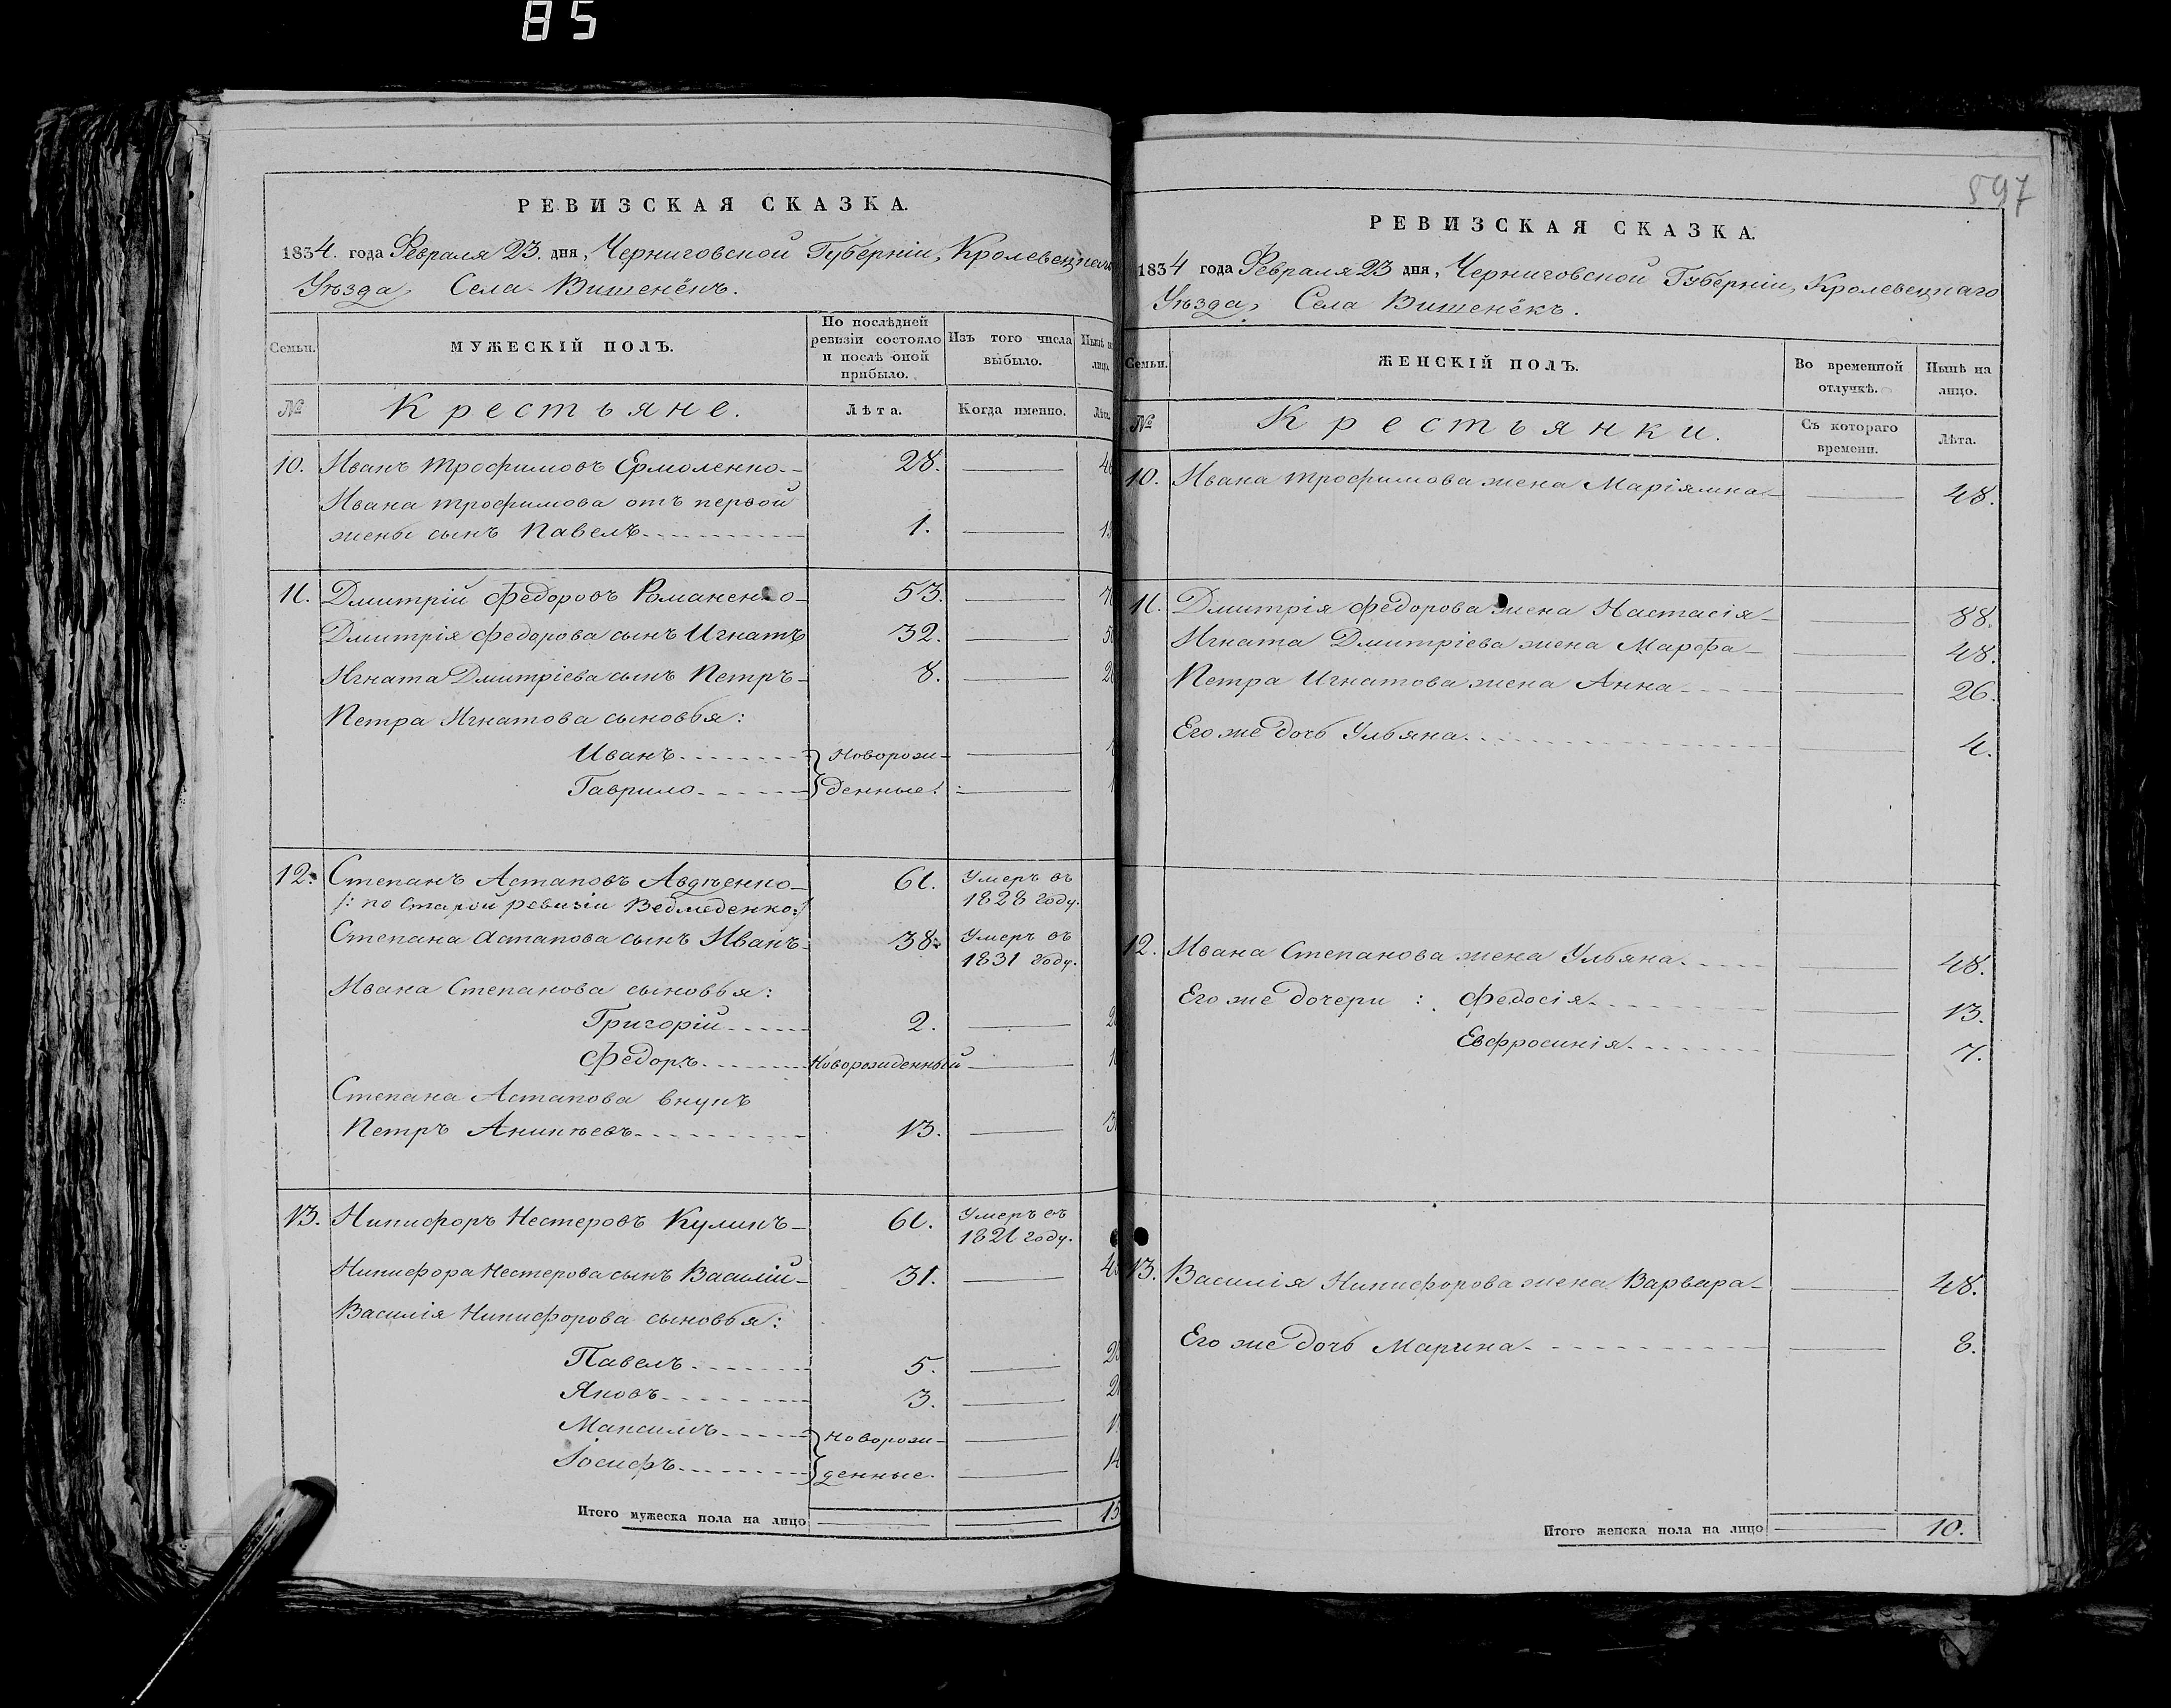 85
РЕВИЗСКАЯ СКАЗКА.
1834. года Февраля 23. дня, Черниговской Губерніи, Кролевецкаго
Уѣзда, Села Вишенёкъ.
Семьи.
МУЖЕСКІЙ ПОЛЪ.
По послѣдней
ревизіи состояло
и послѣ оной
прибыло.
Изъ того числа
выбыло.
Нынѣ на
лицо.
№
Крестьяне.
Лѣта.
Когда именно.
Лѣта.
10. Иванъ Трофимовъ Ермоленко 28.
Ивана Трофимова отъ первой
жены сынъ Павелъ 1.
11. Дмитрій Федоровъ Романенко 53.
Дмитрія Федорова сынъ Игнатъ 32.
Игната Дмитріева сынъ Петръ 8.
Петра Игнатова сыновья:
Иванъ Новорож-
Гаврило денные.
12. Степанъ Астаповъ Авдѣенко 61. Умеръ въ
/: по старой ревизіи Ведмеденко :/ 1828 году.
Степана Астапова сынъ Иванъ 38. Умеръ въ
1831 году.
Ивана Степанова сыновья:
Григорій 2.
Федоръ Новорожденный
Степана Астапова внукъ
Петръ Аникѣевъ 13.
13. Никифоръ Нестеровъ Куликъ 61. Умеръ въ
1821 году.
Никифора Нестерова сынъ Василій 31.
Василія Никифорова сыновья:
Павелъ 5.
Яковъ 3.
Максимъ Новорож-
Іосифъ денные. 14
Итого мужеска пола на лицо 15
597
РЕВИЗСКАЯ СКАЗКА.
1834 года Февраля 23 дня, Черниговской Губерніи, Кролевецкаго
Уѣзда, Села Вишенёкъ.
Семьи.
ЖЕНСКІЙ ПОЛЪ.
Во временной
отлучкѣ.
Нынѣ на
лицо.
№
Крестьянки.
Съ котораго
времени.
Лѣта.
10. Ивана Трофимова жена Маріямна 48.
11. Дмитрія Федорова жена Настасія 88.
Игната Дмитріева жена Марфа 48.
Петра Игнатова жена Анна 26.
Его же дочь Ульяна 4.
12. Ивана Степанова жена Ульяна 48.
Его же дочери: Федосія 13.
Евфросинія 7.
13. Василія Никифорова жена Варвара 48.
Его же дочь Марина 8.
Итого женска пола на лицо 10.